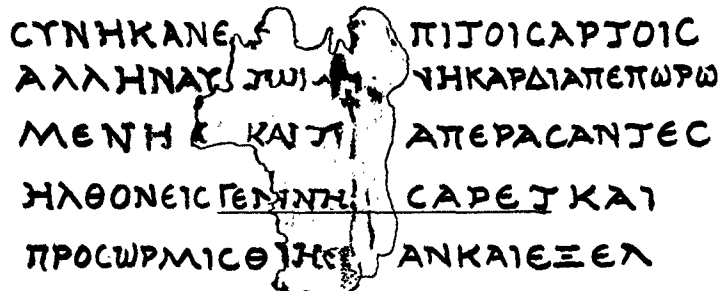 ϹΥΝΗΚΑΝΕ ΠΙΤΟΙϹΑΡΤΟΙϹ
ΑΛΛΗΝΑΥ ΤΩΙ Η ΝΗΚΑΡΔΙΑΠΕΠΩΡΩ
ΜΕΝΗ ΚΑΙ ΤΙ ΑΠΕΡΑϹΑΝΤΕϹ
ΗΛΘΟΝΕΙϹ ΓΕΝΝΗ ϹΑΡΕΤ ΚΑΙ
ΠΡΟϹΩΡΜΙϹΘΗϹ ΑΝΚΑΙΕΞΕΛ